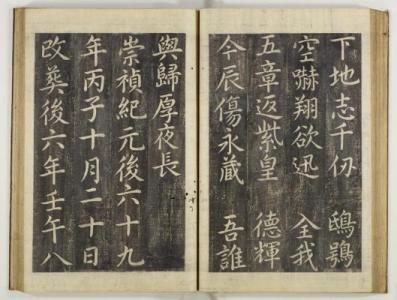 下地志千仞　鴟鴞
空嚇翔欲迅　全我
五章返紫皇　德輝
今辰傷永藏　吾誰
與歸厚夜長
崇禎紀元後六十九
年丙子十月二十日
改葬後六年壬午八